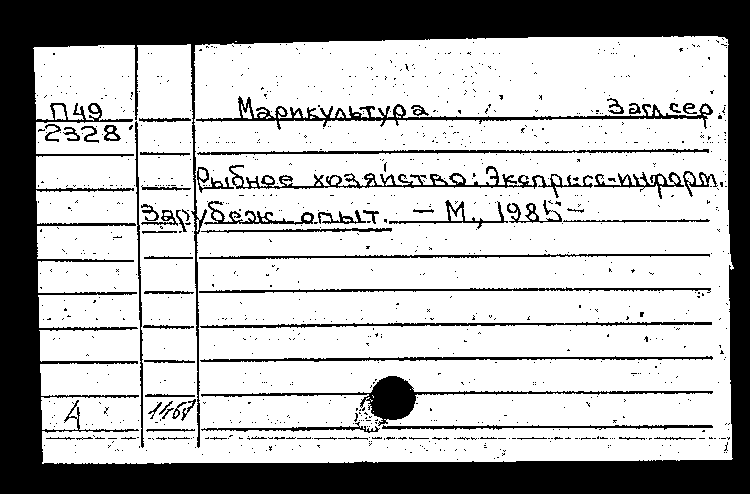 П49 Марикультура Загл.сер.
2328
Рыбное хозяйство: Экспресс-информ.
Заруβеж. опыт. – М., 1985–
4